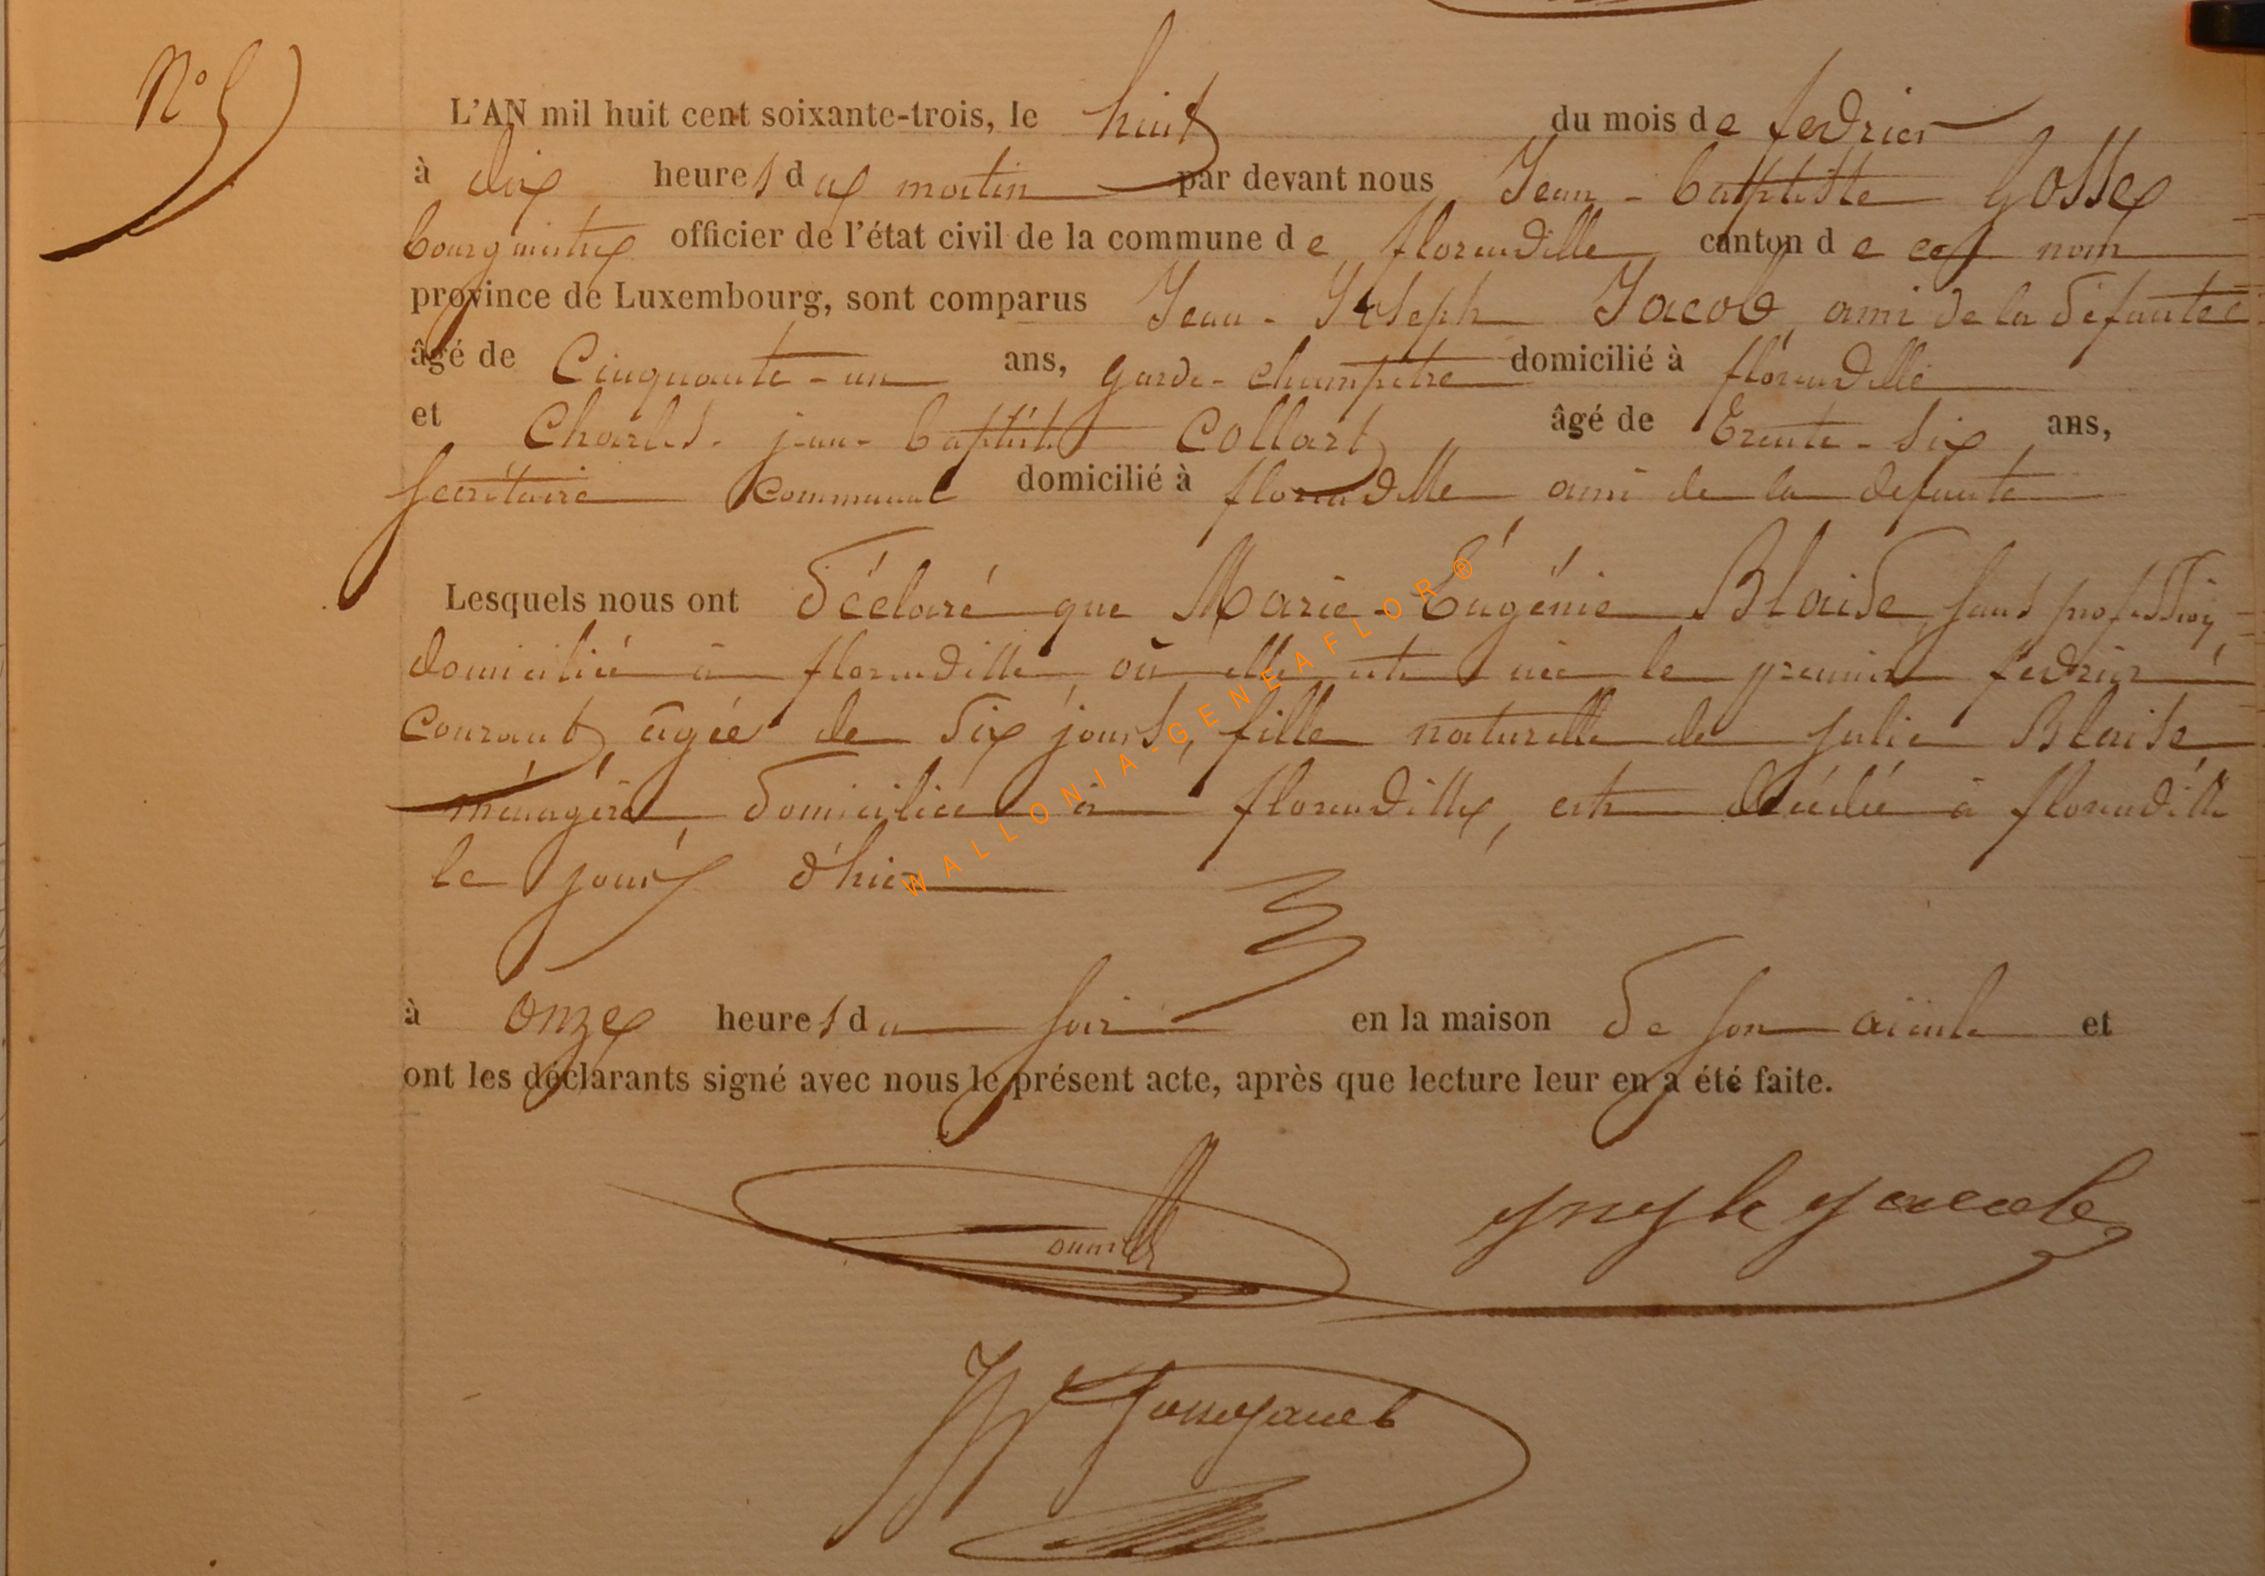 N° 5
L'AN mil huit cent soixante-trois, le huit du mois de fevrier
à dix heures du matin par devant nous Jean-baptiste Gosse
bourgmestre officier de l'état civil de la commune de florenville canton de ce nom
province de Luxembourg, sont comparus Jean-Joseph Jacob, ami de la défunte
âgé de Cinquante-un ans, garde-champêtre domicilié à florenville
et Charles-jean-baptiste Collart âgé de trente-six ans,
secrétaire communal domicilié à florenville ami de la défunte
Lesquels nous ont déclaré que Marie-Eugénie Blaise, sans profession,
domiciliée à florenville, où elle est née le premier fevrier
courant, âgée de six jours, fille naturelle de julie Blaise,
ménagère, domiciliée à florenville, est décédée à florenville
le jour d'hier
à onze heures du soir en la maison de son aïeule et
ont les déclarants signé avec nous le présent acte, après que lecture leur en a été faite.
WALLONIA-GENEAFLOR®